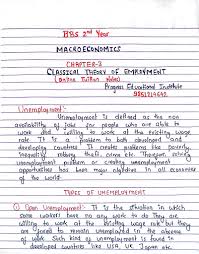 BBS 2nd Year
MACROECONOMICS
CHAPTER-3
CLASSICAL THEORY OF EMPLOYMENT
(Online Tuition Notes)
Pragess Educational Institute
9851214642
Unemployment:-
Unemployment is defined as the non
availability of jobs for people who are able to
work and willing to work at the existing wage
rate. It is a problem to both developed and
developing countries. It creates problems like poverty,
inequality, robbery, theft, crime etc. Therefore solving
unemployment problem or creating unemployment
opportunities has been major objective in all economies
of the world.
TYPES OF UNEMPLOYMENT
① Open Unemployment:- It is the situation in which
some workers have no any work to do. They are
willing to work at the existing wage rule but they
are forced to remain unemployed in the absence
of work. Such kind of unemployment is found in
developed countries like USA, UK, Japan etc.